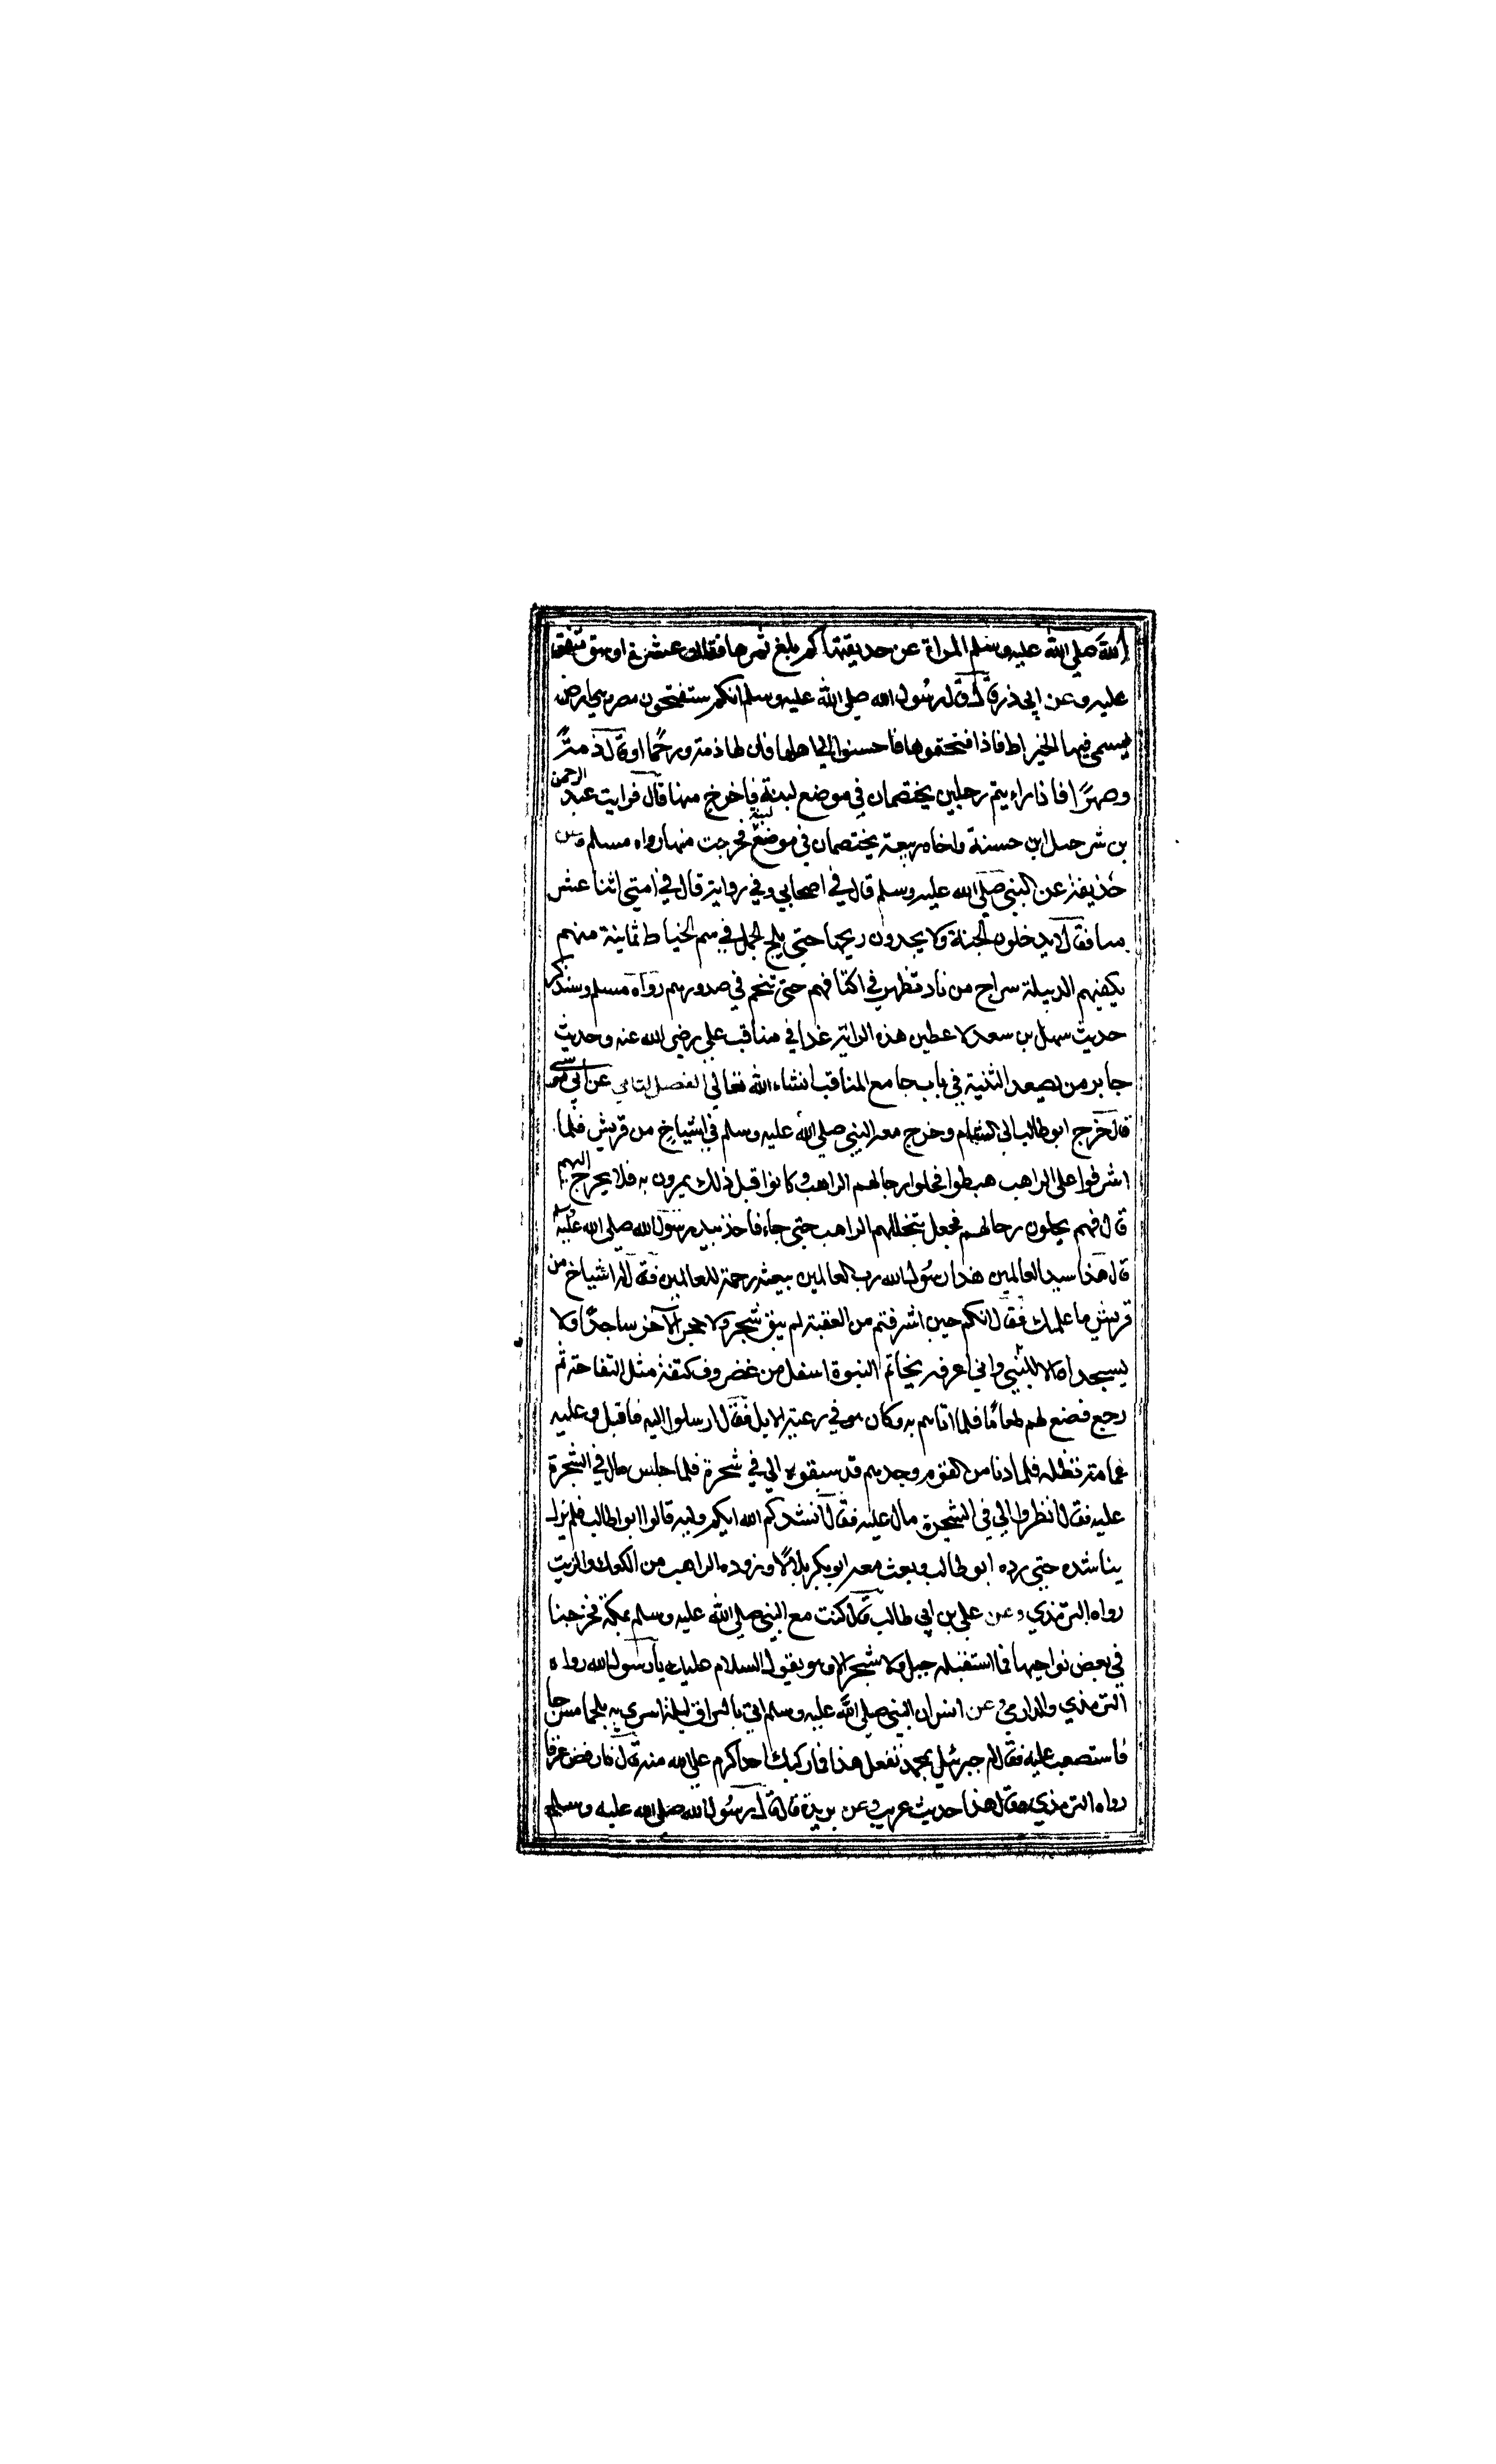 الله صلى الله عليه وسلم المراة عن حديقتها كم بلغ ثمرها فقالت عشرة اوسق متفق
عليه وعن ابي ذر قال قال رسول الله صلى الله عليه وسلم انكم ستفتحون مصر وهي ارض
يسمى فيها القيراط فاذا فتحتموها فاحسنوا الى اهلها فان لها ذمة ورحما او قال ذمة
وصهرا فاذا رايتم رجلين يختصمان في موضع لبنة فاخرج منها قال فرايت عبد الرحمن
بن شرحبيل ابن حسنة واخاه ربيعة يختصمان في موضع لبنة فخرجت منها رواه مسلم وعن
حذيفة عن النبي صلى الله عليه وسلم قال في اصحابي وفي رواية قال في امتي اثنا عشر
منافقا لا يدخلون الجنة ولا يجدون ريحها حتى يلج الجمل في سم الخياط ثمانية منهم
يكفيهم الدبيلة سراج من نار تظهر في اكتافهم حتى تنجم في صدورهم رواه مسلم وسنذكر
حديث سهل بن سعد لاعطين هذه الراية غدا في مناقب علي رضي الله عنه وحديث
جابر من يصعد الثنية في باب جامع المناقب انشاء الله تعالى الفصل الثاني عن ابي موسى
قال خرج ابو طالب الى الشام وخرج معه النبي صلى الله عليه وسلم في اشياخ من قريش فلما
اشرفوا على الراهب هبطوا فحلوا رحالهم الراهب وكانوا قبل ذلك يمرون به فلا يخرج اليهم
قال فهم يحلون رحالهم فجعل يتخللهم الراهب حتى جاء فاخذ بيد رسول الله صلى الله عليه
قال هذا سيد العالمين هذا رسول الله رب العالمين يبعثه رحمة للعالمين فقال له اشياخ من
قريش ما علمك فقال انكم حين اشرفتم من العقبة لم يبق شجر ولا حجر الا خر ساجدا ولا
يسجدان الا للنبي واني اعرفه بخاتم النبوة اسفل من غضروف كتفه مثل التفاحة ثم
رجع فصنع لهم طعاما فلما اتاهم به وكان هو في رعية الابل فقال ارسلوا اليه فاقبل وعليه
غمامة تظله فلما دنا من القوم وجدهم قد سبقوه الى فئ شجرة فلما جلس مال فئ الشجرة
عليه فقال انظروا الى فئ الشجرة مال عليه فقال انشدكم الله ايكم وليه قالوا ابو طالب فلم يزل
يناشده حتى رده ابو طالب وبعث معه ابو بكر بلالا وزوده الراهب من الكعك والزيت
رواه الترمذي وعن علي بن ابي طالب قال كنت مع النبي صلى الله عليه وسلم بمكة فخرجنا
في بعض نواحيها فما استقبله جبل ولا شجر الا وهو يقول السلام عليك يا رسول الله رواه
الترمذي والدارمي وعن انس ان النبي صلى الله عليه وسلم اتي بالبراق ليلة اسري به ملجما مسرجا
فاستصعب عليه فقال له جبرئيل بمحمد تفعل هذا فما ركبك احد اكرم على الله منه قال فارفض عرقا
رواه الترمذي وقال هذا حديث غريب وعن بريدة قال قال رسول الله صلى الله عليه وسلم